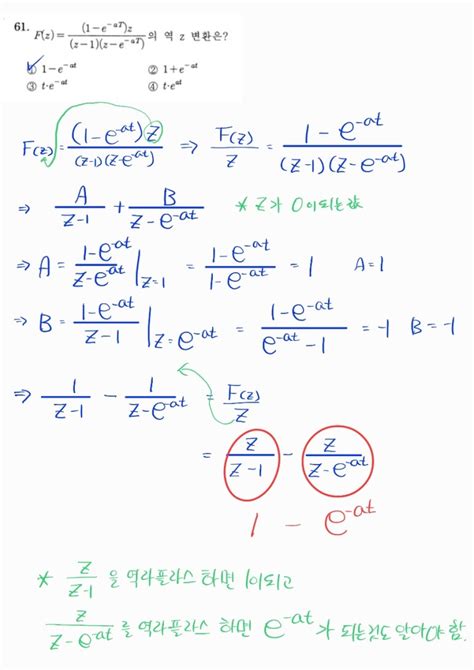 61. F(z)=\frac{(1-e^{-aT})z}{(z-1)(z-e^{-aT})}의 역 z 변환은?
① 1-e^{-at} ② 1+e^{-at}
③ t·e^{-at} ④ t·e^{at}
F(z)=\frac{(1-e^{-at})z}{(z-1)(z-e^{-at})} ⇒ \frac{F(z)}{z}=\frac{1-e^{-at}}{(z-1)(z-e^{-at})}
⇒ \frac{A}{z-1}+\frac{B}{z-e^{-at}} * z가 0이되는값
⇒ A=\frac{1-e^{-at}}{z-e^{-at}}|_{z=1} = \frac{1-e^{-at}}{1-e^{-at}}=1 A=1
⇒ B=\frac{1-e^{-at}}{z-1}|_{z=e^{-at}} = \frac{1-e^{-at}}{e^{-at}-1}=-1 B=-1
⇒ \frac{1}{z-1}-\frac{1}{z-e^{-at}}=\frac{F(z)}{z}
=\frac{z}{z-1}-\frac{z}{z-e^{-at}}
1-e^{-at}
* \frac{z}{z-1}을 역라플라스 하면 1이되고
\frac{z}{z-e^{-at}}를 역라플라스 하면 e^{-at}가 되는것도 알아야 함.